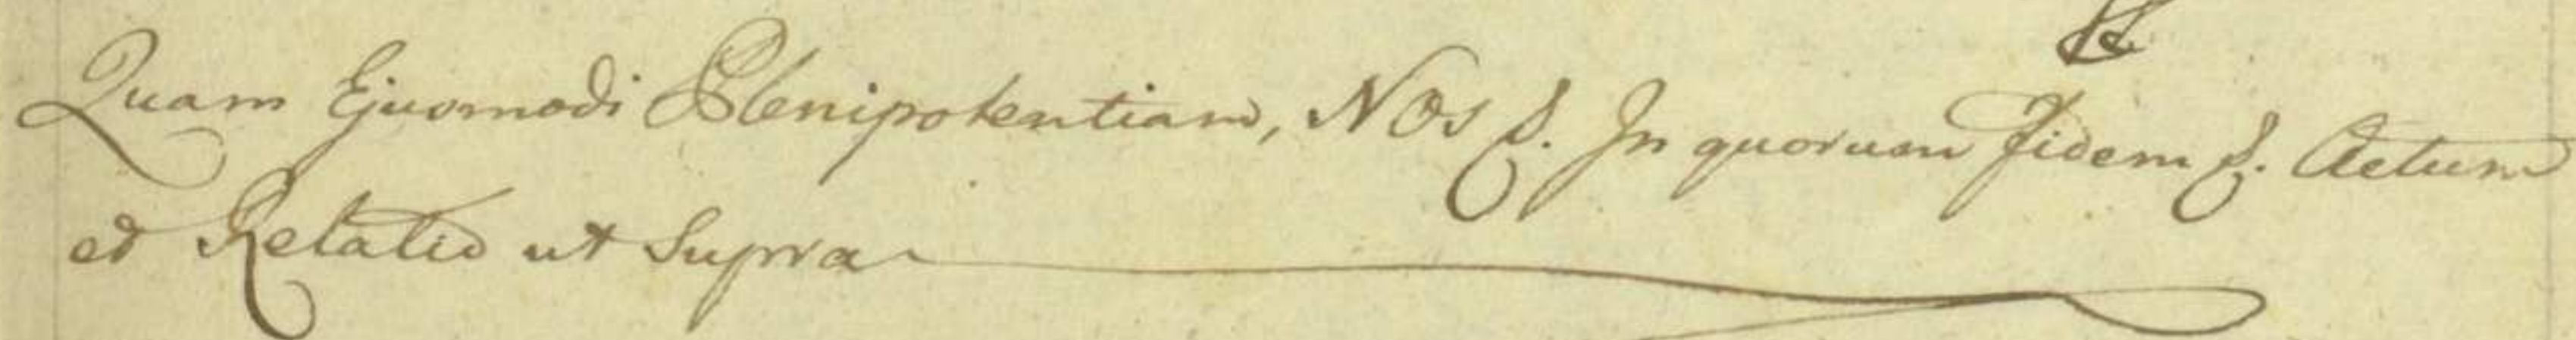 Quam Ejusmodi Plenipotentiam, Nos &. In quorum fidem &. Actum
et Relatio ut Supra